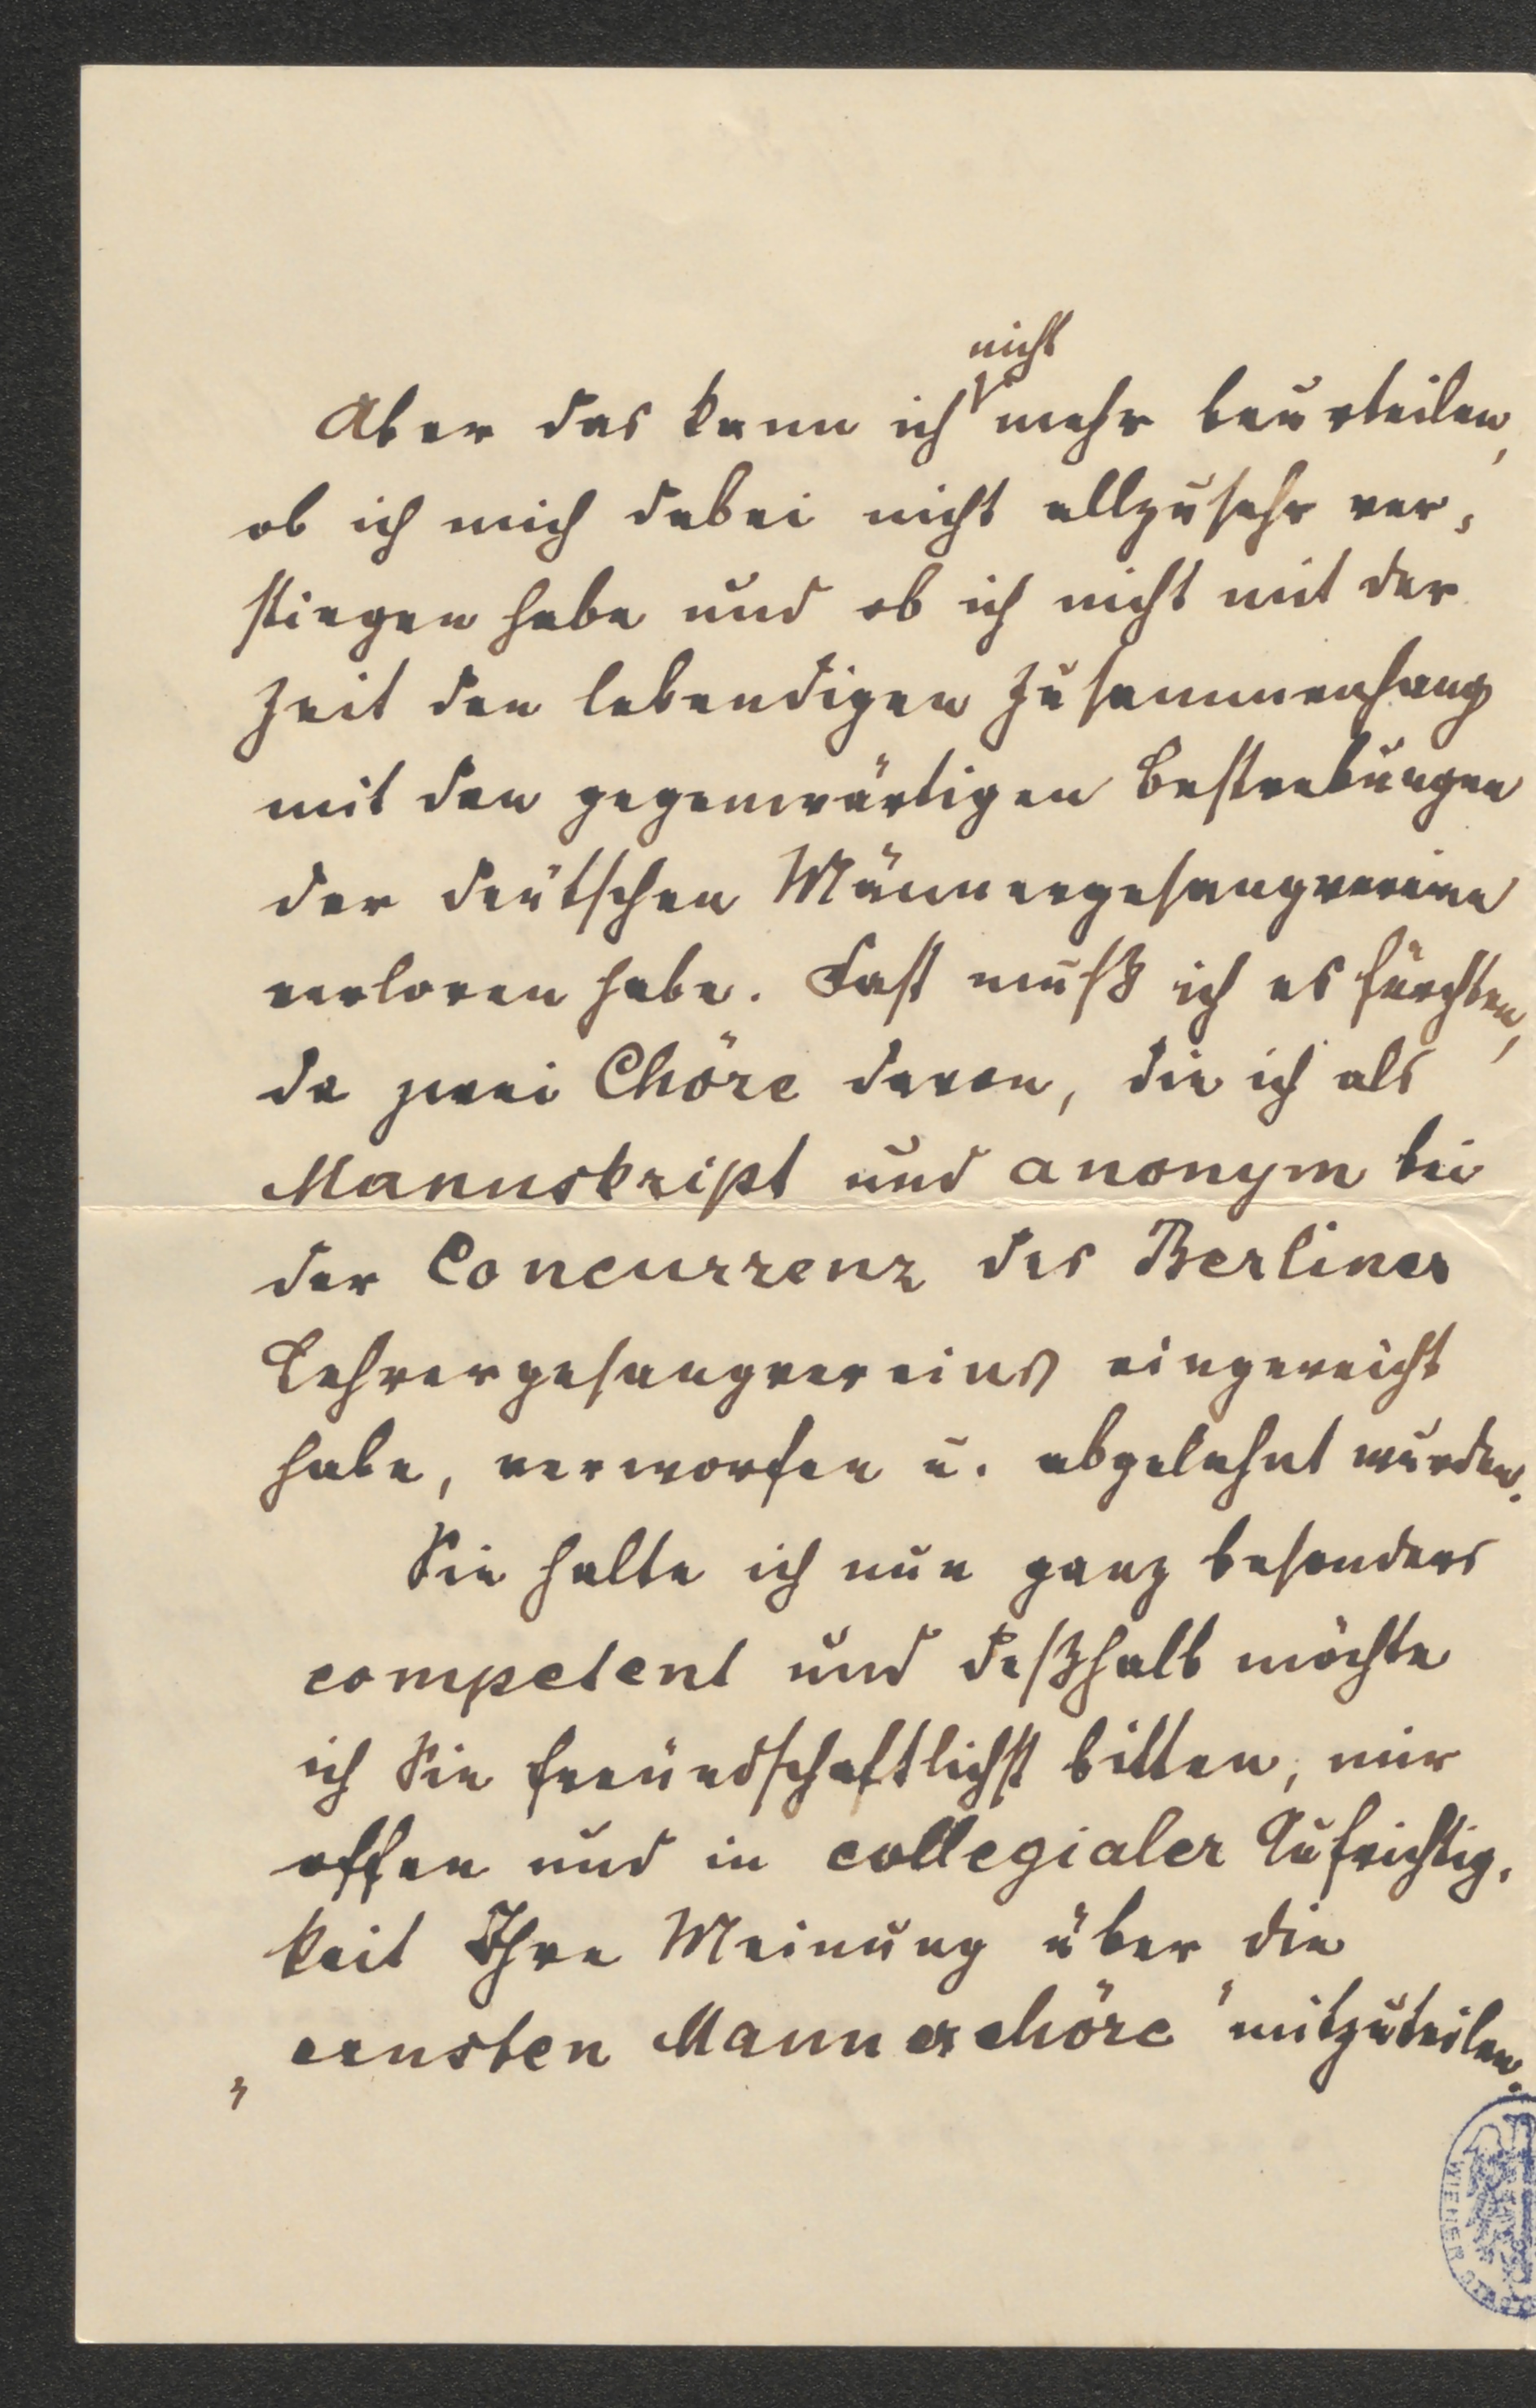 nicht
Aber das kann ich mehr beurteilen,
ob ich mich dabei nicht allzusehr ver-
stiegen habe und ob ich nicht mit der
Zeit den lebendigen Zusammenhang
mit den gegenwärtigen Bestrebungen
der deutschen Männergesangvereine
verloren habe. Fast muß ich es fürchten,
da zwei Chöre davon, die ich als
Manuskript und anonym bei
der Concurrenz des Berliner
Lehrergesangvereins eingereicht
habe, verworfen u. abgelehnt wurden.
Sie halte ich nun ganz besonders
competent und deßhalb möchte
ich Sie freundschaftlichst bitten, mir
offen und in collegialer Aufrichtig-
keit Ihre Meinung über die
„ernsten Mannerchöre" mitzuteilen.
WIENER STADT